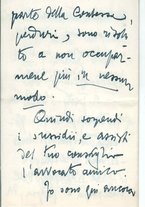 parto della Contessa
perduri, sono risolu
to a non occupar-
mene più in nessun
modo.
Quindi sospendi
i sussidii, e assisti
del tuo consiglio
l'avvocato amico.
Io sono qui ancora